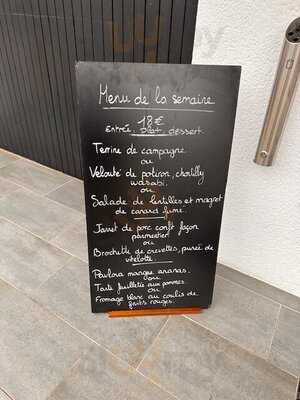 Menu de la semaine
18€
Entrée, plat, dessert
Terrine de campagne
ou
Velouté de potiron, chantilly
wasabi.
ou
Salade de lentilles et magret
de canard fumé.
Jarret de porc confit façon
parmentier
ou
Brochette de crevettes, purée de
vitelotte.
Pavlova mangue ananas.
ou
Tarte feuilletée aux pommes.
ou
Fromage blanc au coulis de
fruits rouges.